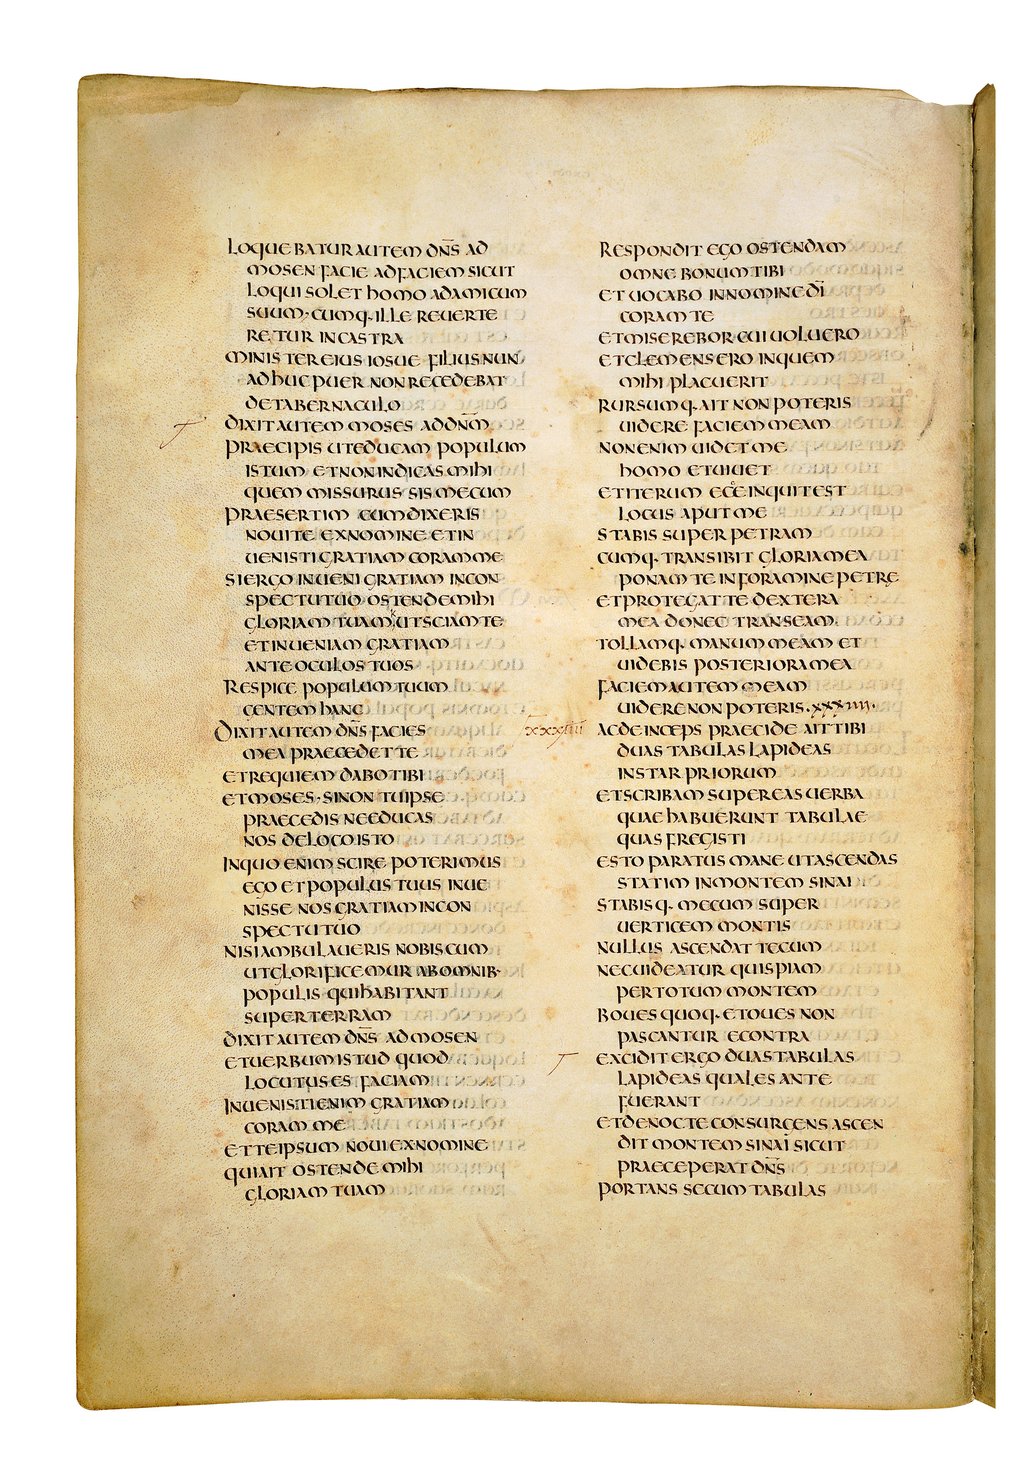 LOQUEBATUR AUTEM DN̄S AD
MOSEN FACIE AD FACIEM SICUT
LOQUI SOLET HOMO AD AMICUM
SUUM· CUMQ· ILLE REUERTE
RETUR IN CASTRA
MINISTER EIUS IOSUE FILIUS NUN
ADHUC PUER NON RECEDEBAT
DE TABERNACULO
DIXIT AUTEM MOSES AD DN̄M
PRAECIPIS UT EDUCAM POPULUM
ISTUM ET NON INDICAS MIHI
QUEM MISSURUS SIS MECUM
PRAESERTIM CUM DIXERIS
NOUI TE EX NOMINE ET IN
UENISTI GRATIAM CORAM ME
SI ERGO INUENI GRATIAM IN CON
SPECTU TUO OSTENDE MIHI
GLORIAM TUAM UT SCIAM TE
ET INUENIAM GRATIAM
ANTE OCULOS TUOS
RESPICE POPULUM TUUM
GENTEM HANC
DIXIT AUTEM DN̄S FACIES
MEA PRAECEDET TE
ET REQUIEM DABO TIBI
ET MOSES· SI NON TU IPSE
PRAECEDIS NE EDUCAS
NOS DE LOCO ISTO
IN QUO ENIM SCIRE POTERIMUS
EGO ET POPULUS TUUS INUE
NISSE NOS GRATIAM IN CON
SPECTU TUO
NISI AMBULAUERIS NOBISCUM
UT GLORIFICEMUR AB OMNIB·
POPULIS QUI HABITANT
SUPER TERRAM
DIXIT AUTEM DN̄S AD MOSEN
ET UERBUM ISTUD QUOD
LOCUTUS ES FACIAM
INUENISTI ENIM GRATIAM
CORAM ME
ET TE IPSUM NOUI EX NOMINE
QUI AIT OSTENDE MIHI
GLORIAM TUAM
RESPONDIT EGO OSTENDAM
OMNE BONUM TIBI
ET UOCABO IN NOMINE DĪ
CORAM TE
ET MISEREBOR CUI UOLUERO
ET CLEMENS ERO IN QUEM
MIHI PLACUERIT
RURSUMQ· AIT NON POTERIS
UIDERE FACIEM MEAM
NON ENIM UIDET ME
HOMO ET UIUET
ET ITERUM ECCE INQUIT EST
LOCUS APUT ME
STABIS SUPER PETRAM
CUMQ· TRANSIBIT GLORIA MEA
PONAM TE IN FORAMINE PETRE
ET PROTEGAT TE DEXTERA
MEA DONEC TRANSEAM
TOLLAMQ· MANUM MEAM ET
UIDEBIS POSTERIORA MEA
FACIEM AUTEM MEAM
UIDERE NON POTERIS ·XXXIIII·
XXXIIII AC DEINCEPS PRAECIDE AIT TIBI
DUAS TABULAS LAPIDEAS
INSTAR PRIORUM
ET SCRIBAM SUPER EAS UERBA
QUAE HABUERUNT TABULAE
QUAS FREGISTI
ESTO PARATUS MANE UT ASCENDAS
STATIM IN MONTEM SINAI
STABISQ· MECUM SUPER
UERTICEM MONTIS
NULLUS ASCENDAT TECUM
NEC UIDEATUR QUISPIAM
PER TOTUM MONTEM
BOUES QUOQ· ET OUES NON
PASCANTUR ECONTRA
EXCIDIT ERGO DUAS TABULAS
LAPIDEAS QUALES ANTE
FUERANT
ET DE NOCTE CONSURGENS ASCEN
DIT MONTEM SINAI SICUT
PRAECEPERAT DN̄S
PORTANS SECUM TABULAS